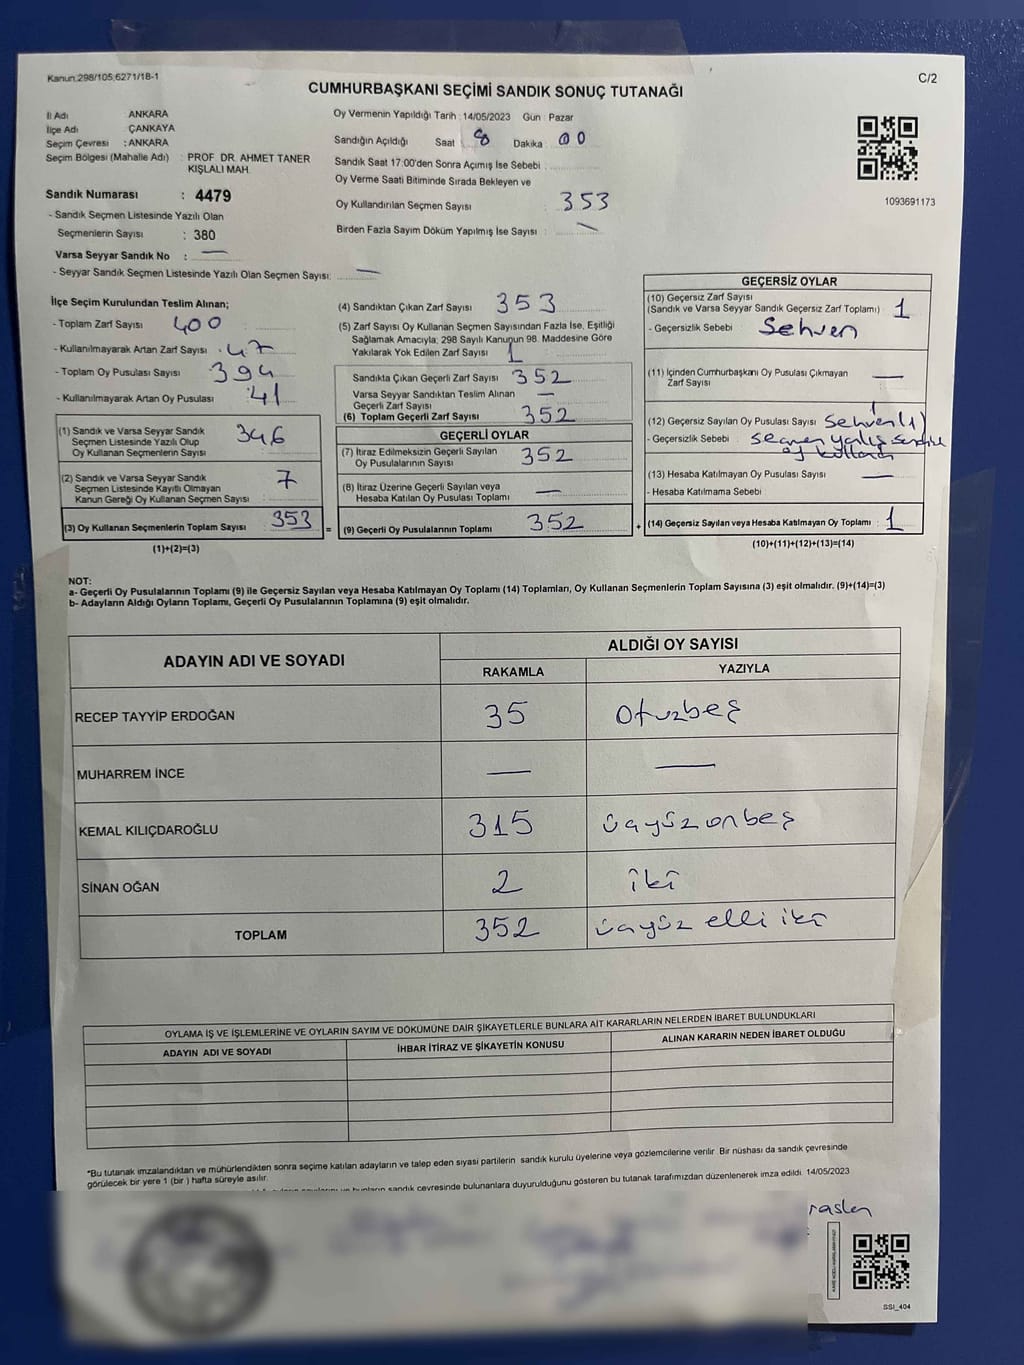 Kanun:298/105,6271/18-1
C/2
CUMHURBAŞKANI SEÇİMİ SANDIK SONUÇ TUTANAĞI
İl Adı ANKARA
İlçe Adı ÇANKAYA
Seçim Çevresi : ANKARA
Seçim Bölgesi (Mahalle Adı) : PROF. DR. AHMET TANER KIŞLALI MAH.
Sandık Numarası : 4479
- Sandık Seçmen Listesinde Yazılı Olan
Seçmenlerin Sayısı : 380
Varsa Seyyar Sandık No : —
- Seyyar Sandık Seçmen Listesinde Yazılı Olan Seçmen Sayısı: —
Oy Vermenin Yapıldığı Tarih : 14/05/2023 Gün : Pazar
Sandığın Açıldığı Saat 8 Dakika 00
Sandık Saat 17:00'den Sonra Açımış İse Sebebi :
Oy Verme Saati Bitiminde Sırada Bekleyen ve
Oy Kullandırılan Seçmen Sayısı : 353
Birden Fazla Sayım Döküm Yapılmış İse Sayısı : —
1093691173
İlçe Seçim Kurulundan Teslim Alınan;
- Toplam Zarf Sayısı 400
- Kullanılmayarak Artan Zarf Sayısı 47
- Toplam Oy Pusulası Sayısı 394
- Kullanılmayarak Artan Oy Pusulası 41
(1) Sandık ve Varsa Seyyar Sandık
Seçmen Listesinde Yazılı Olup
Oy Kullanan Seçmenlerin Sayısı 346
(2) Sandık ve Varsa Seyyar Sandık
Seçmen Listesinde Kayıtlı Olmayan
Kanun Gereği Oy Kullanan Seçmen Sayısı 7
(3) Oy Kullanan Seçmenlerin Toplam Sayısı 353 =
(1)+(2)=(3)
(4) Sandıktan Çıkan Zarf Sayısı 353
(5) Zarf Sayısı Oy Kullanan Seçmen Sayısından Fazla İse, Eşitliği
Sağlamak Amacıyla; 298 Sayılı Kanunun 98. Maddesine Göre
Yakılarak Yok Edilen Zarf Sayısı 1
Sandıkta Çıkan Geçerli Zarf Sayısı 352
Varsa Seyyar Sandıktan Teslim Alınan
Geçerli Zarf Sayısı —
(6) Toplam Geçerli Zarf Sayısı 352
GEÇERLİ OYLAR
(7) İtiraz Edilmeksizin Geçerli Sayılan
Oy Pusulalarının Sayısı 352
(8) İtiraz Üzerine Geçerli Sayılan veya
Hesaba Katılan Oy Pusulası Toplamı —
(9) Geçerli Oy Pusulalarının Toplamı 352 +
GEÇERSİZ OYLAR
(10) Geçersiz Zarf Sayısı
(Sandık ve Varsa Seyyar Sandık Geçersiz Zarf Toplamı) : 1
- Geçersizlik Sebebi Sehven
(11) İçinden Cumhurbaşkanı Oy Pusulası Çıkmayan
Zarf Sayısı —
(12) Geçersiz Sayılan Oy Pusulası Sayısı Sehven(1)
- Geçersizlik Sebebi : seçmen yalış
oy kullandı
(13) Hesaba Katılmayan Oy Pusulası Sayısı —
- Hesaba Katılmama Sebebi
(14) Geçersiz Sayılan veya Hesaba Katılmayan Oy Toplamı : 1
(10)+(11)+(12)+(13)=(14)
NOT:
a- Geçerli Oy Pusulalarının Toplamı (9) ile Geçersiz Sayılan veya Hesaba Katılmayan Oy Toplamı (14) Toplamları, Oy Kullanan Seçmenlerin Toplam Sayısına (3) eşit olmalıdır. (9)+(14)=(3)
b- Adayların Aldığı Oyların Toplamı, Geçerli Oy Pusulalarının Toplamına (9) eşit olmalıdır.
ADAYIN ADI VE SOYADI
ALDIĞI OY SAYISI
RAKAMLA YAZIYLA
RECEP TAYYİP ERDOĞAN 35 Otuzbeş
MUHARREM İNCE — —
KEMAL KILIÇDAROĞLU 315 üçyüzonbeş
SİNAN OĞAN 2 iki
TOPLAM 352 üçyüz elli iki
OYLAMA İŞ VE İŞLEMLERİNE VE OYLARIN SAYIM VE DÖKÜMÜNE DAİR ŞİKAYETLERLE BUNLARA AİT KARARLARIN NELERDEN İBARET BULUNDUKLARI
ADAYIN ADI VE SOYADI İHBAR İTİRAZ VE ŞİKAYETİN KONUSU ALINAN KARARIN NEDEN İBARET OLDUĞU
"Bu tutanak imzalandıktan ve mühürlendikten sonra seçime katılan adayların ve talep eden siyasi partilerin sandık kurulu üyelerine veya gözlemcilerine verilir. Bir nüshası da sandık çevresinde
görülecek bir yere 1 (bir) hafta süreyle asılır.
sandık çevresinde bulunanlara duyurulduğunu gösteren bu tutanak tarafımızdan düzenlenerek imza edildi. 14/05/2023
raslan
SSI_404